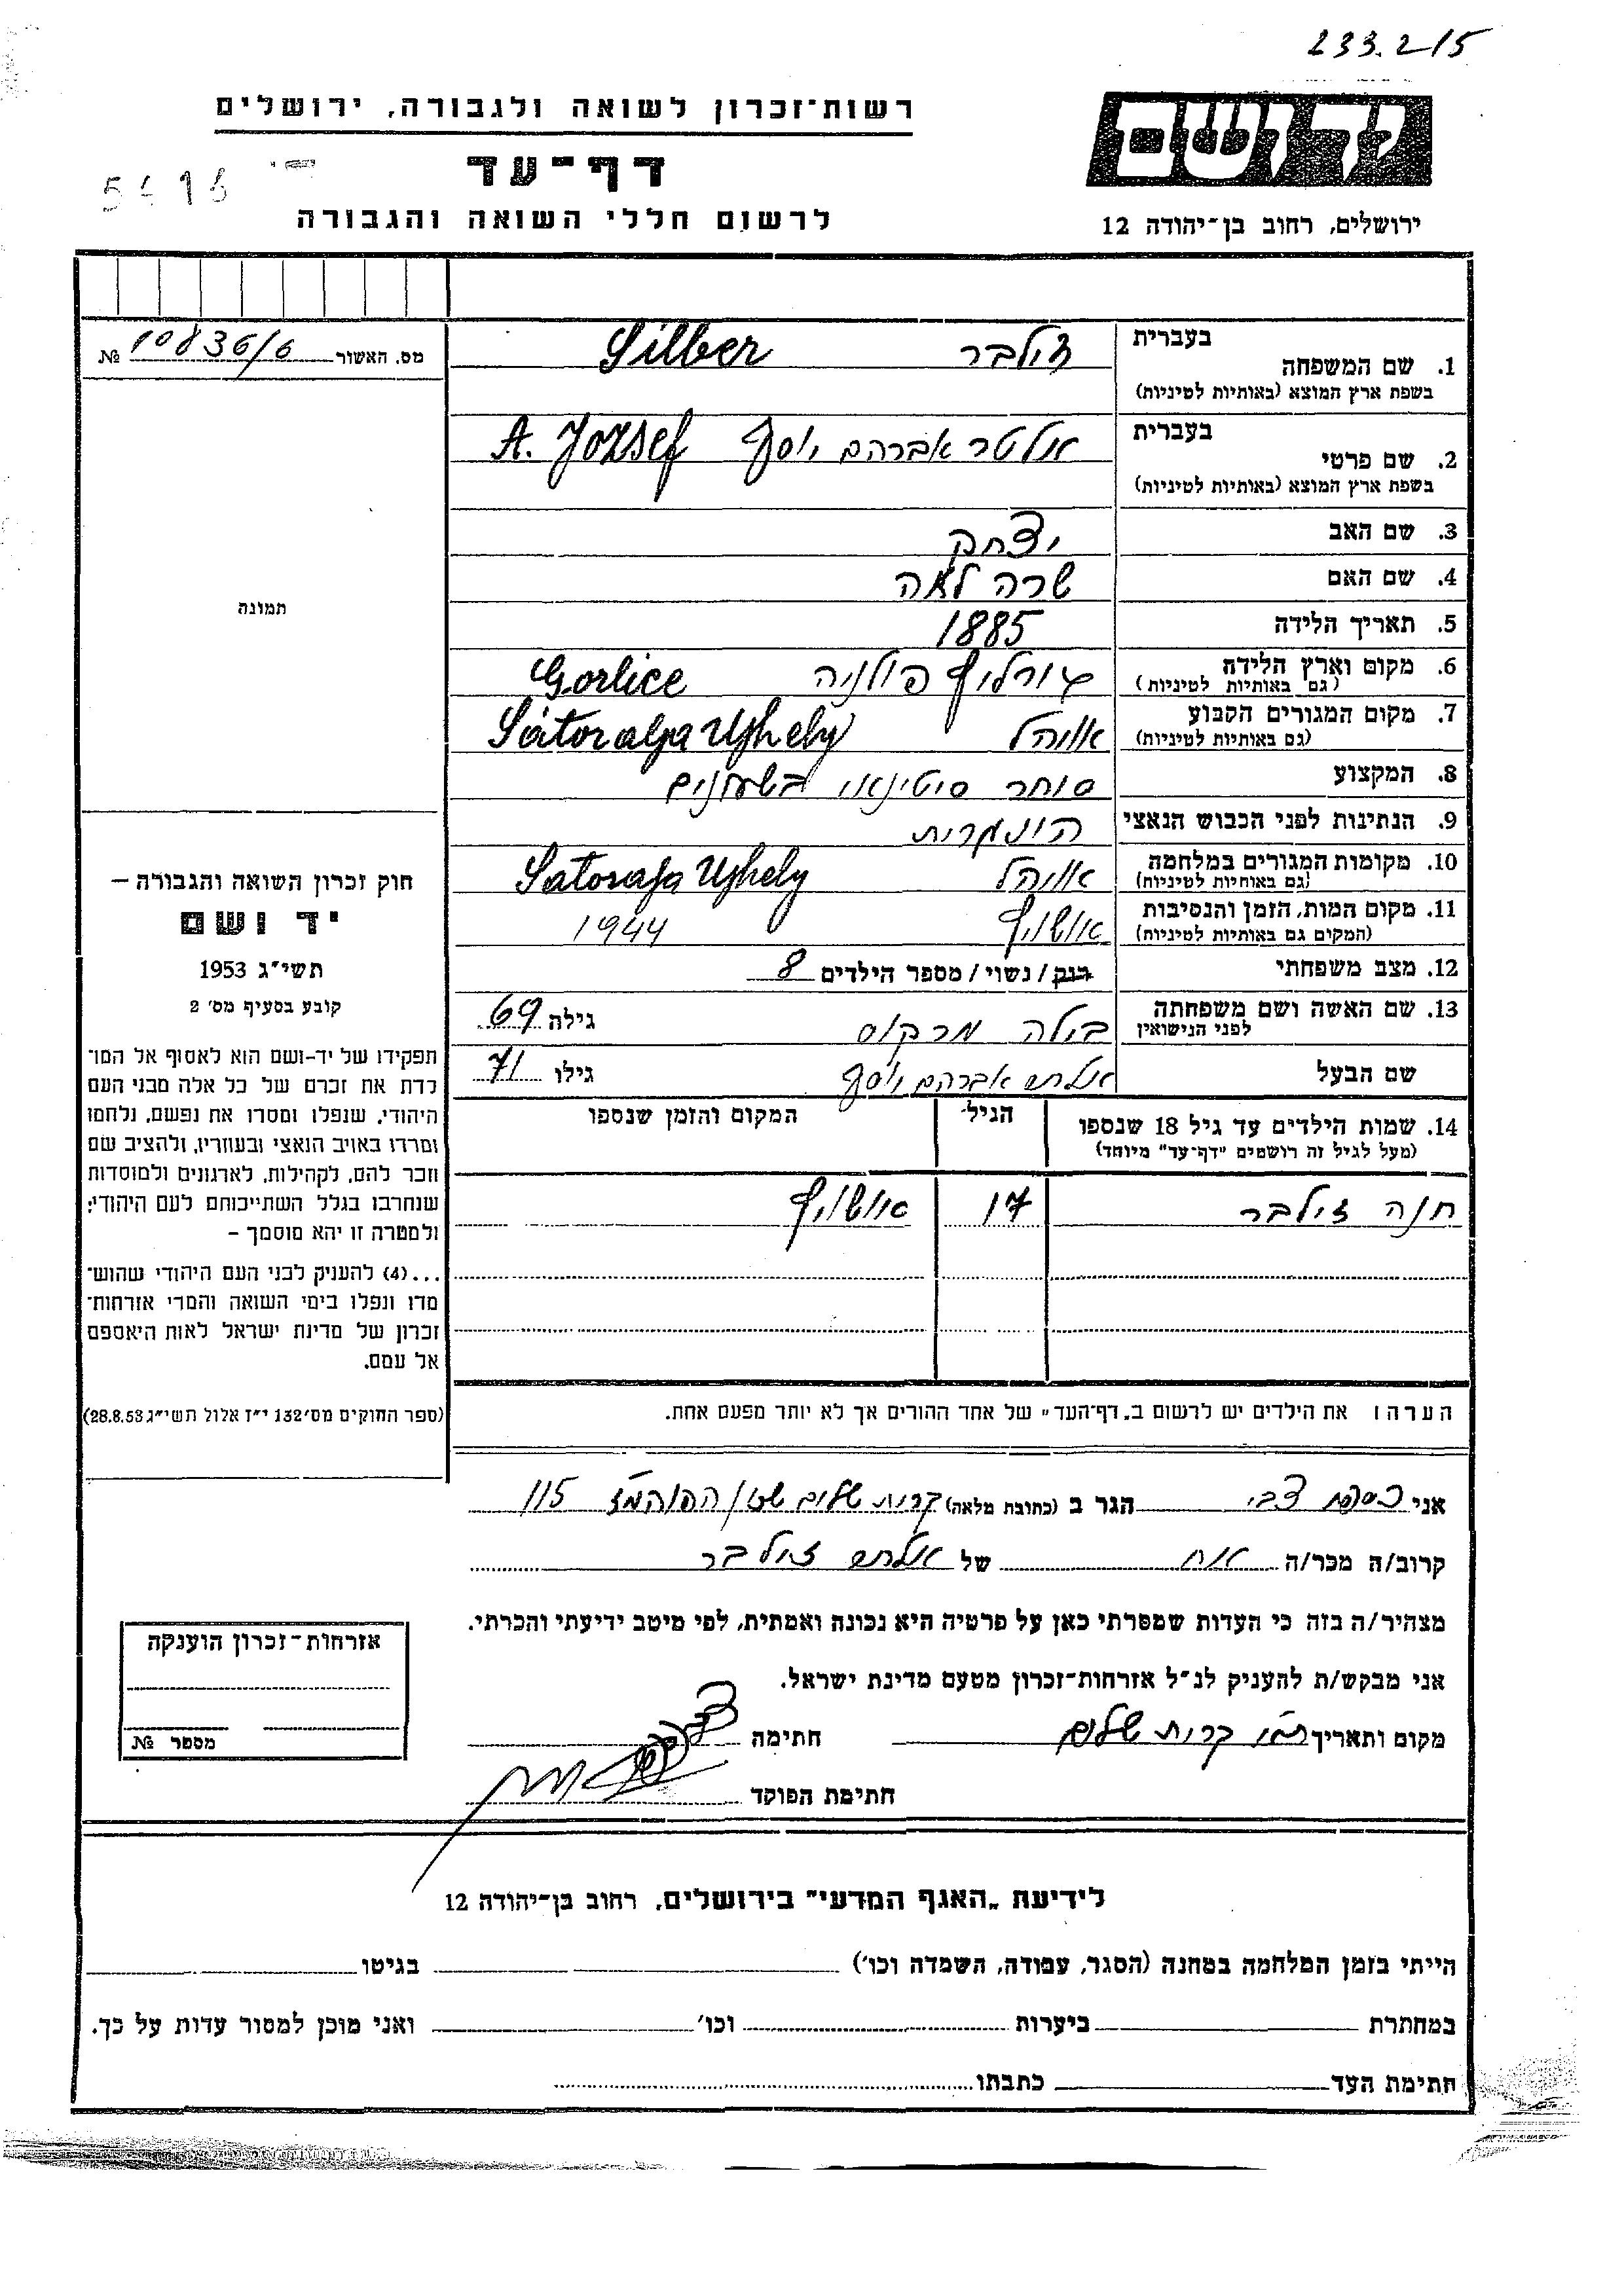 233.2/5
רשות־זכרון לשואה ולגבורה, ירושלים
דף־עד
לרשום חללי השואה והגבורה
יד ושם
ירושלים, רחוב בן־יהודה 12
מס. האשור 10836/6 №
תמונה
חוק זכרון השואה והגבורה –
יד ושם
תשי״ג 1953
קובע בסעיף מס׳ 2
תפקידו של יד-ושם הוא לאסוף אל המו־
לדת את זכרם של כל אלה מבני העם
היהודי, שנפלו ומסרו את נפשם, נלחמו
ומרדו באויב הנאצי ובעוזריו, ולהציב שם
וזכר להם, לקהילות, לארגונים ולמוסדות
שנחרבו בגלל השתייכותם לעם היהודי;
ולמטרה זו יהא מוסמך –
...(4) להעניק לבני העם היהודי שהוש־
מדו ונפלו בימי השואה והמרי אזרחות־
זכרון של מדינת ישראל לאות היאספם
אל עמם.
(ספר החוקים מס׳ 132 י״ז אלול תשי״ג 28.8.53)
בעברית
1. שם המשפחה זילבר Silber
בשפת ארץ המוצא (באותיות לטיניות)
בעברית
2. שם פרטי אלטר אברהם יוסף A. Jozsef
בשפת ארץ המוצא (באותיות לטיניות)
3. שם האב יצחק
4. שם האם שרה לאה
5. תאריך הלידה 1885
6. מקום וארץ הלידה גורליץ פולניה Gorlice
(גם באותיות לטיניות)
7. מקום המגורים הקבוע אוהל Sátoralja Ujhely
(גם באותיות לטיניות)
8. המקצוע סוחר סיטונאי בשעונים
9. הנתינות לפני הכבוש הנאצי הונגרית
10. מקומות המגורים במלחמה אוהל Satoralja Ujhely
(גם באותיות לטיניות)
11. מקום המות, הזמן והנסיבות אושויץ 1944
(המקום גם באותיות לטיניות)
12. מצב משפחתי רווק / נשוי / מספר הילדים 8
13. שם האשה ושם משפחתה לפני הנישואין בילה מרקוס גילה 69
שם הבעל אלתר אברהם יוסף גילו 71
14. שמות הילדים עד גיל 18 שנספו הגיל המקום והזמן שנספו
(מעל לגיל זה רושמים ״דף־עד״ מיוחד)
חנה זילבר 17 אושויץ
הערה: את הילדים יש לרשום ב„דף־העד״ של אחד ההורים אך לא יותר מפעם אחת.
אני צבי הגר ב (כתובת מלאה) קרית שלום 115
קרוב/ה מכר/ה של אלתר זילבר
מצהיר/ה בזה כי העדות שמסרתי כאן על פרטיה היא נכונה ואמתית, לפי מיטב ידיעתי והכרתי.
אני מבקש/ת להעניק לנ״ל אזרחות־זכרון מטעם מדינת ישראל.
מקום ותאריך קרית שלום חתימה
חתימת הפוקד
אזרחות־זכרון הוענקה
מספר №
לידיעת „האגף המדעי״ בירושלים, רחוב בן־יהודה 12
הייתי בזמן המלחמה במחנה (הסגר, עבודה, השמדה וכו׳) בגיטו
במחתרת ביערות וכו׳ ואני מוכן למסור עדות על כך.
חתימת העד כתבתו